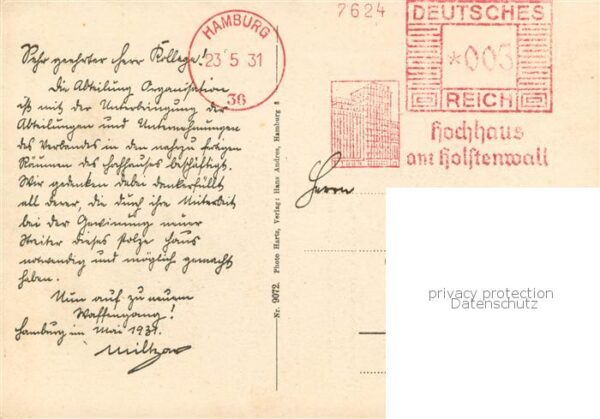 HAMBURG
23 5 31
36
7624
DEUTSCHES
*005
REICH
Hochhaus
am Holstenwall
Sehr geehrter Herr Kollege!
Die Abteilung Organisation
ist mit der Unterbringung der
Abteilungen und Unternehmungen
des Verbandes in den nahezu fertigen
Räumen des Hochhauses beschäftigt.
Wir gedenken dabei dankerfüllt
all derer, die durch ihre Mitarbeit
bei der Gewinnung neuer
Streiter dieses stolze Haus
notwendig und möglich gemacht
haben.
Nun auf zu neuem
Waffengang!
Hamburg im Mai 1931.
Nr. 9072. Photo Hartz, Verlag: Hans Andres, Hamburg 8
Herrn
privacy protection
Datenschutz